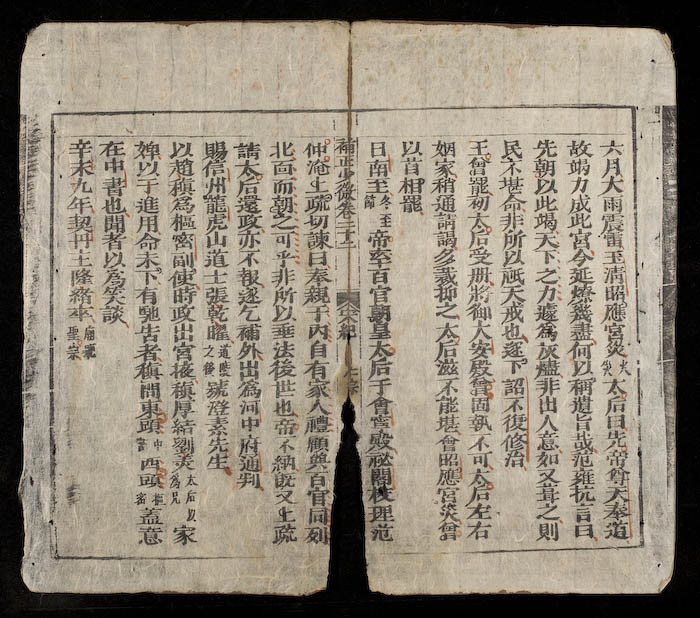 六月大雨震雷玉清昭應宮災火災太后曰先帝尊天奉道
故竭力成此宮今延燎幾盡何以稱遺旨哉范雍抗言曰
先朝以此竭天下之力遽為灰燼非出人意如又葺之則
民不堪命非所以祗天戒也遂下詔不復修治
王曾罷初太后受册將御大安殿曾固執不可太后左右
姻家稍通請謁多裁抑之太后滋不能堪會昭應宮災曾
以首相罷
日南至冬至節帝率百官朝皇太后于會寧殿秘閣校理范
補正少微卷二十二 宋紀 仁宗
仲淹上疏切諫曰奉親于内自有家人禮顧與百官同列
北面而朝之可乎非所以垂法後世也帝不納既又上疏
請太后還政亦不報遂乞補外出為河中府通判
賜信州龍虎山道士張乾曜道陵之後號澄素先生
以趙稹為樞密副使時政出宮掖稹厚結劉美太后以為兄家
婢以于進用命未下有馳告者稹問東頭中書西頭樞密蓋意
在中書也聞者以為笑談
辛未九年契丹主隆緒卒廟號聖宗